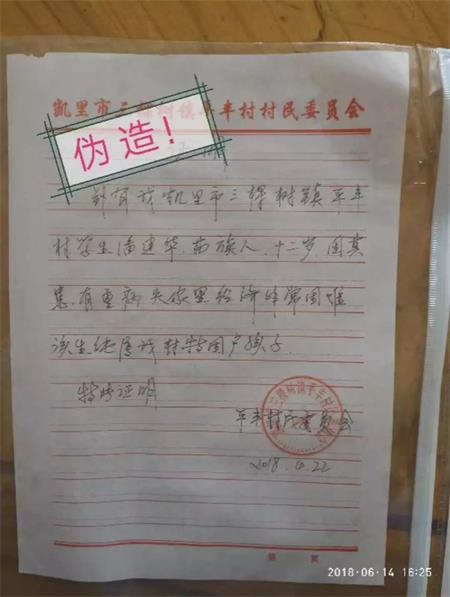 凯里市三棵树镇平丰村村民委员会
伪造!
兹有我凯里市三棵树镇平丰
村学生潘建华,苗族人,十二岁,因其
患有重病,家里经济非常困难
该生纯属我村特困户孩子.
特此证明
平丰村民委员会
2018.4.22
第 页
2018-06-14 16:25